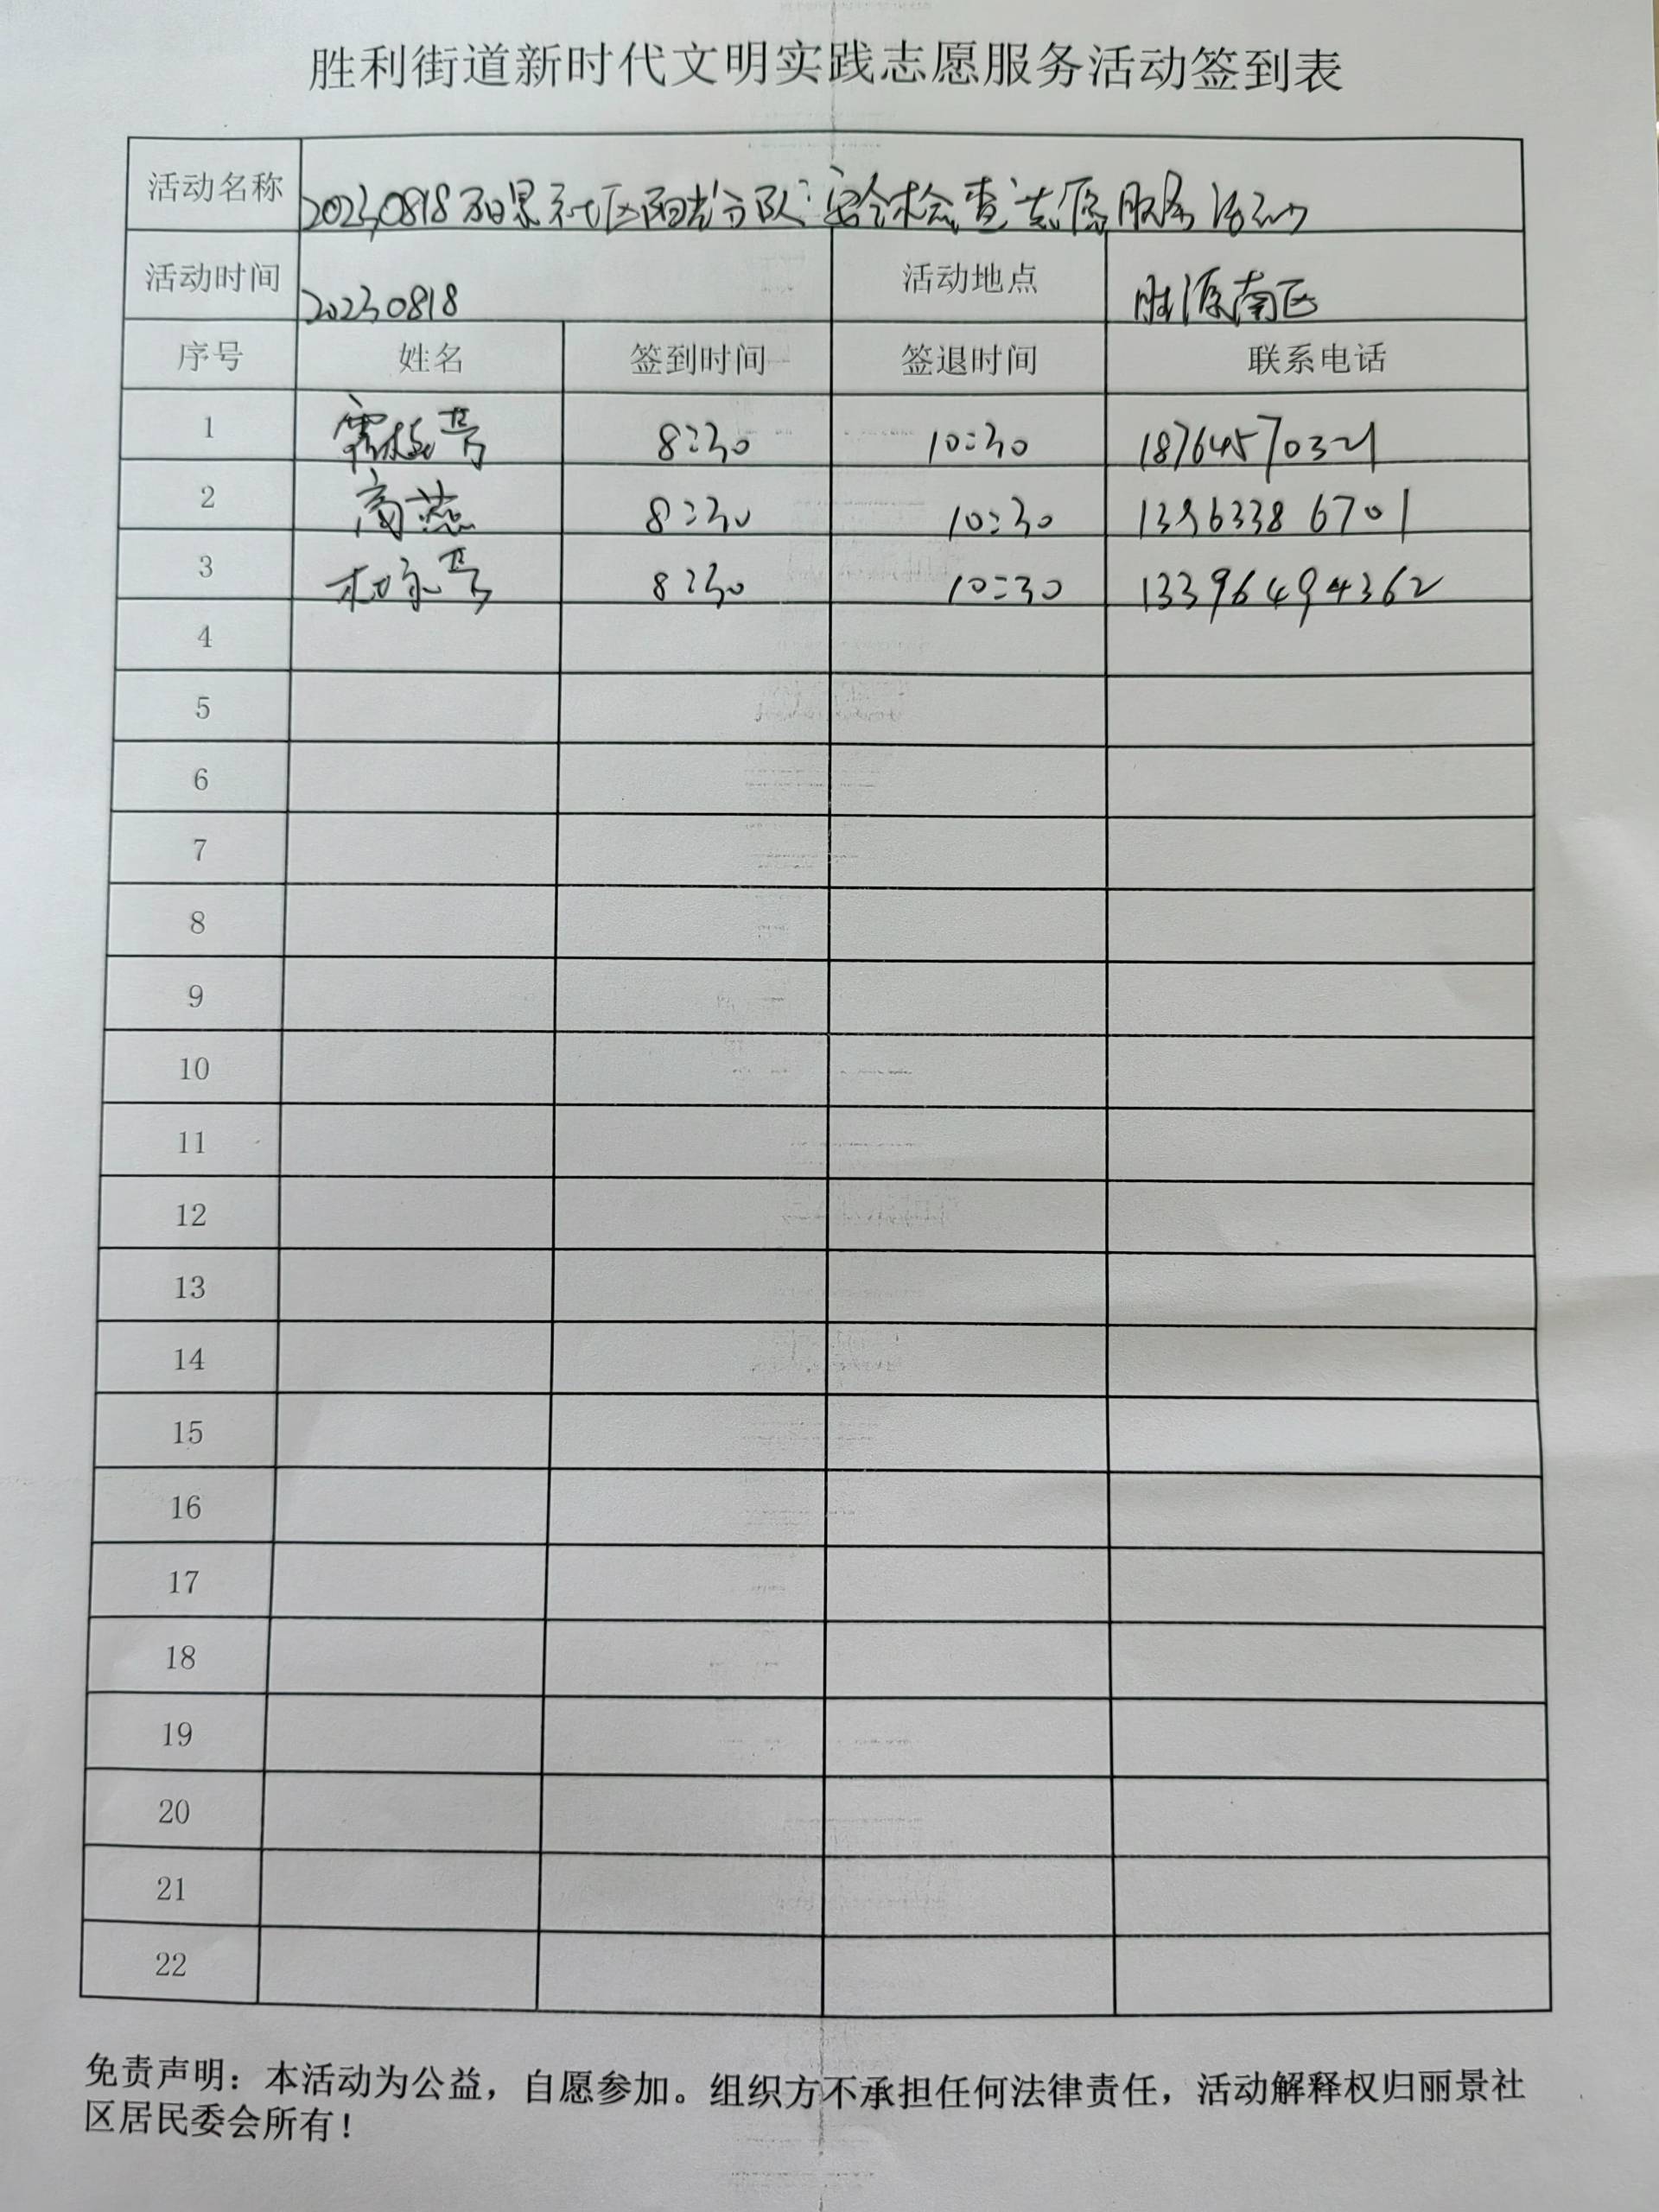 胜利街道新时代文明实践志愿服务活动签到表
活动名称 20230818丽景社区阳光分队:安全检查志愿服务活动
活动时间 20230818 活动地点 胜源南区
序号 姓名 签到时间 签退时间 联系电话
1 8:30 10:30 18764570321
2 高燕 8:30 10:30 13963386701
3 8:30 10:30 13396494362
4
5
6
7
8
9
10
11
12
13
14
15
16
17
18
19
20
21
22
免责声明：本活动为公益，自愿参加。组织方不承担任何法律责任，活动解释权归丽景社
区居民委会所有！